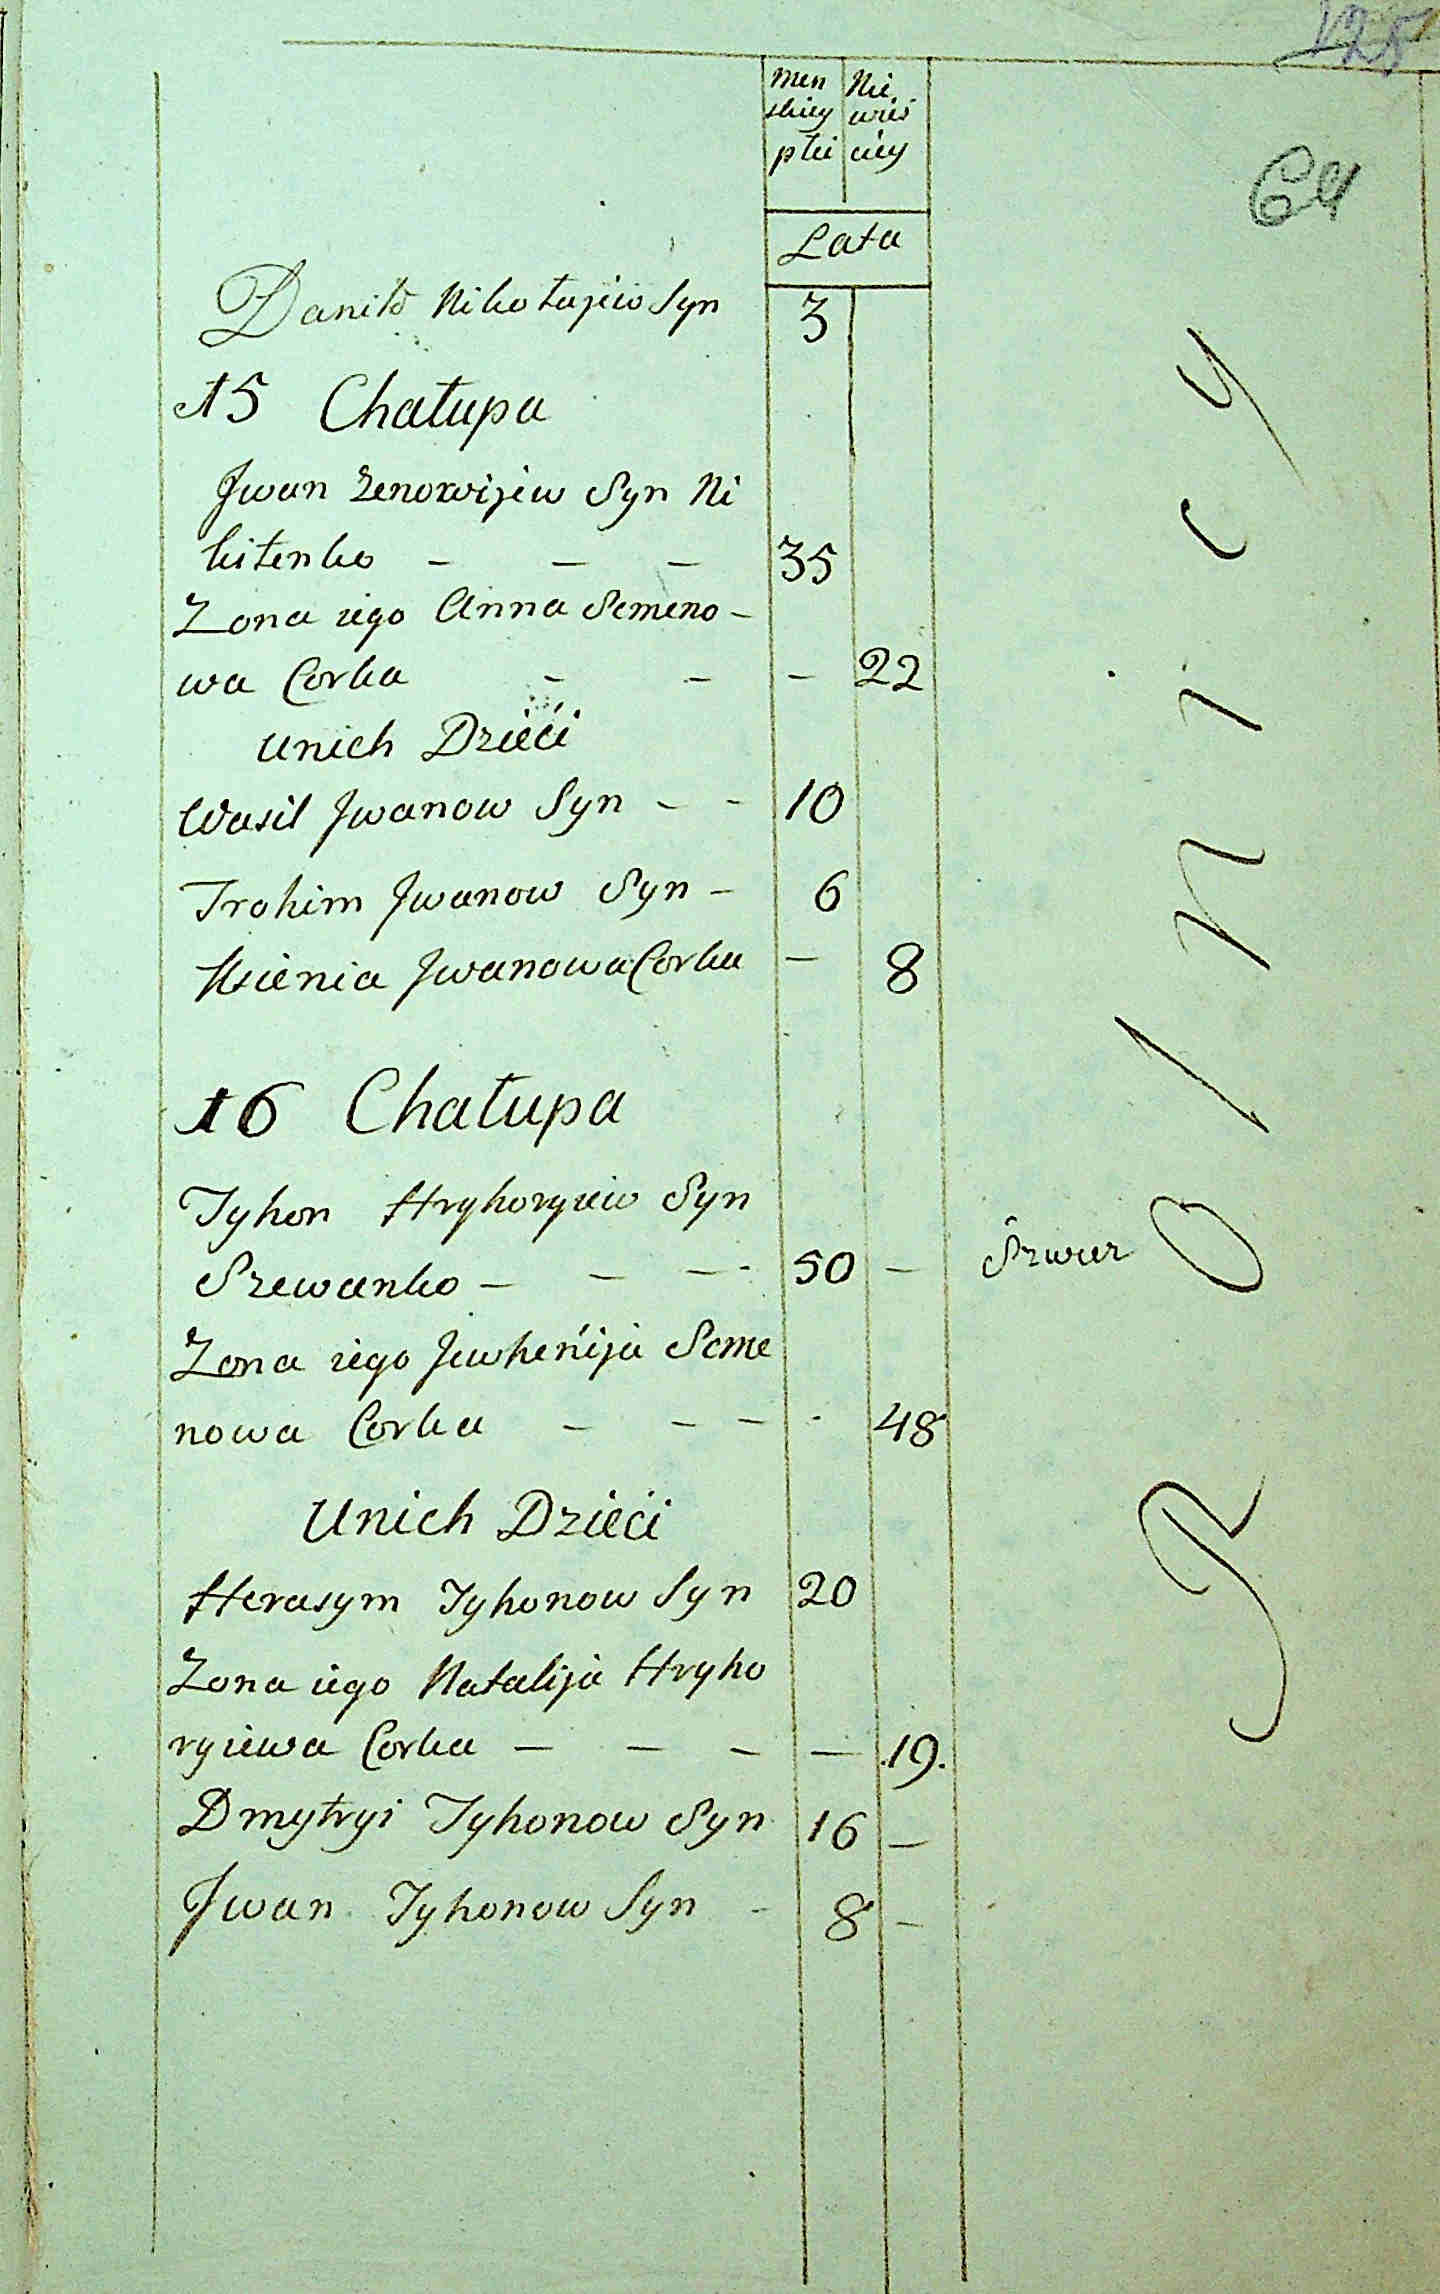 125
men Nie
skiey wieś
płci ciey
64
Lata
Daniło Nikołajiw Syn 3
15 Chałupa
Jwan Zenowijiw Syn Ni
kitenko - - - 35
Zona iego Anna Semeno-
wa Corka - - - 22
Unich Dzieći
Wasil Jwanow Syn - - 10
Trohim Jwanow Syn - 6
Ksienia Jwanowa Corka - 8
16 Chałupa
Tyhon Hryhoryiew Syn
Szewanko - - - 50 - Szwer
Zona iego Jewhenija Seme
nowa Corka - - - - 48
Unich Dzieci
Herasym Tyhonow Syn 20
Zona iego Natalija Hryho
ryiewa Corka - - - - 19.
Dmytryi Tyhonow Syn 16 -
Jwan Tyhonow Syn - 8 -
Rolnicy